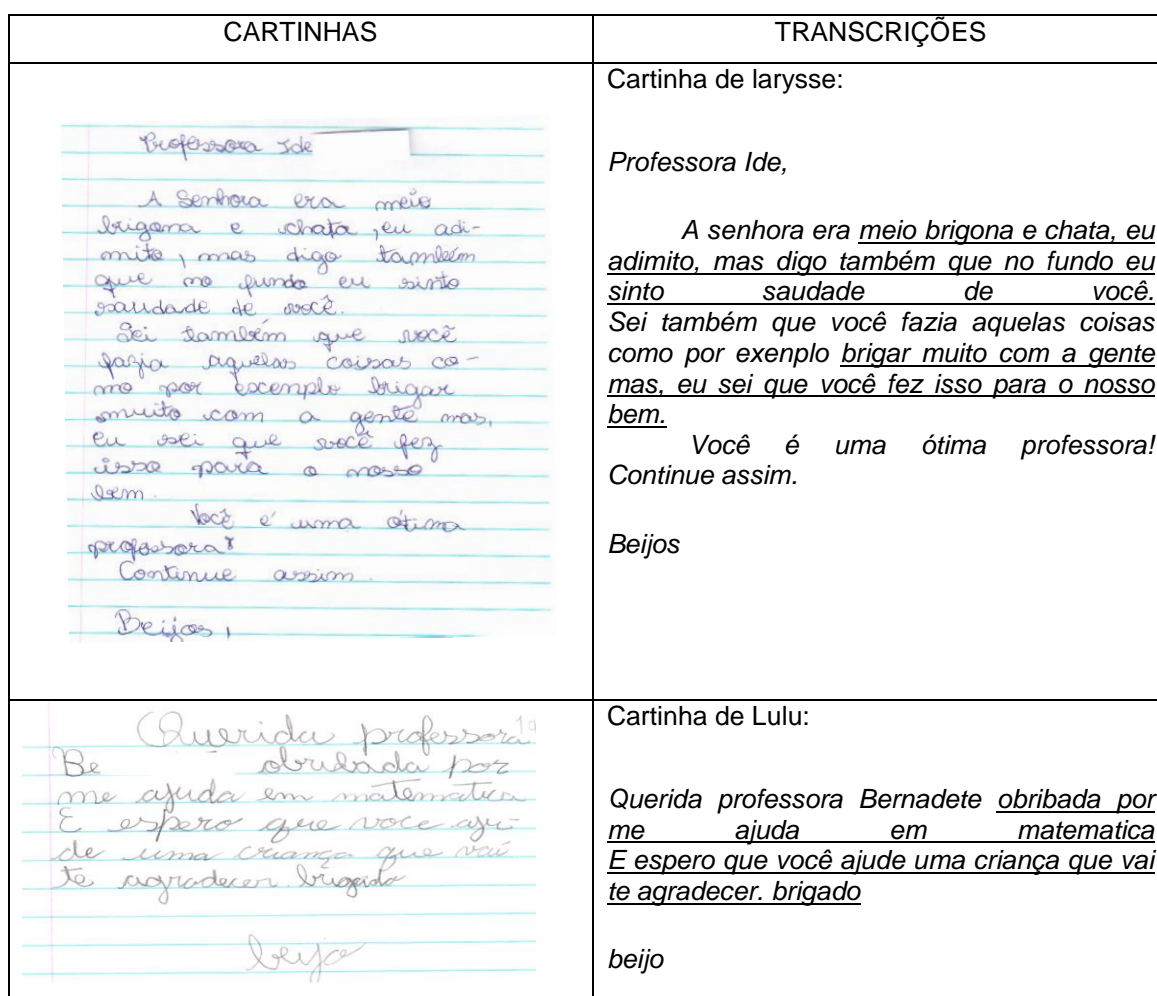 CARTINHAS
TRANSCRIÇÕES
Professora Ide
A Senhora era meio
brigona e chata, eu adi-
mito, mas digo também
que no fundo eu sinto
saudade de você.
Sei também que você
fazia aquelas coisas co-
mo por excenplo brigar
muito com a gente mas,
eu sei que você fez
isso para o nosso
bem.
Você é uma ótima
professora!
Continue assim.
Beijos,
Cartinha de Iarysse:
Professora Ide,
A senhora era meio brigona e chata, eu
adimito, mas digo também que no fundo eu
sinto saudade de você.
Sei também que você fazia aquelas coisas
como por exenplo brigar muito com a gente
mas, eu sei que você fez isso para o nosso
bem.
Você é uma ótima professora!
Continue assim.
Beijos
Querida professora
Be obribada por
me ajuda em matematica
E espero que voce aju-
de uma criança que vai
te agradecer. brigado
beijo
Cartinha de Lulu:
Querida professora Bernadete obribada por
me ajuda em matematica
E espero que você ajude uma criança que vai
te agradecer. brigado
beijo